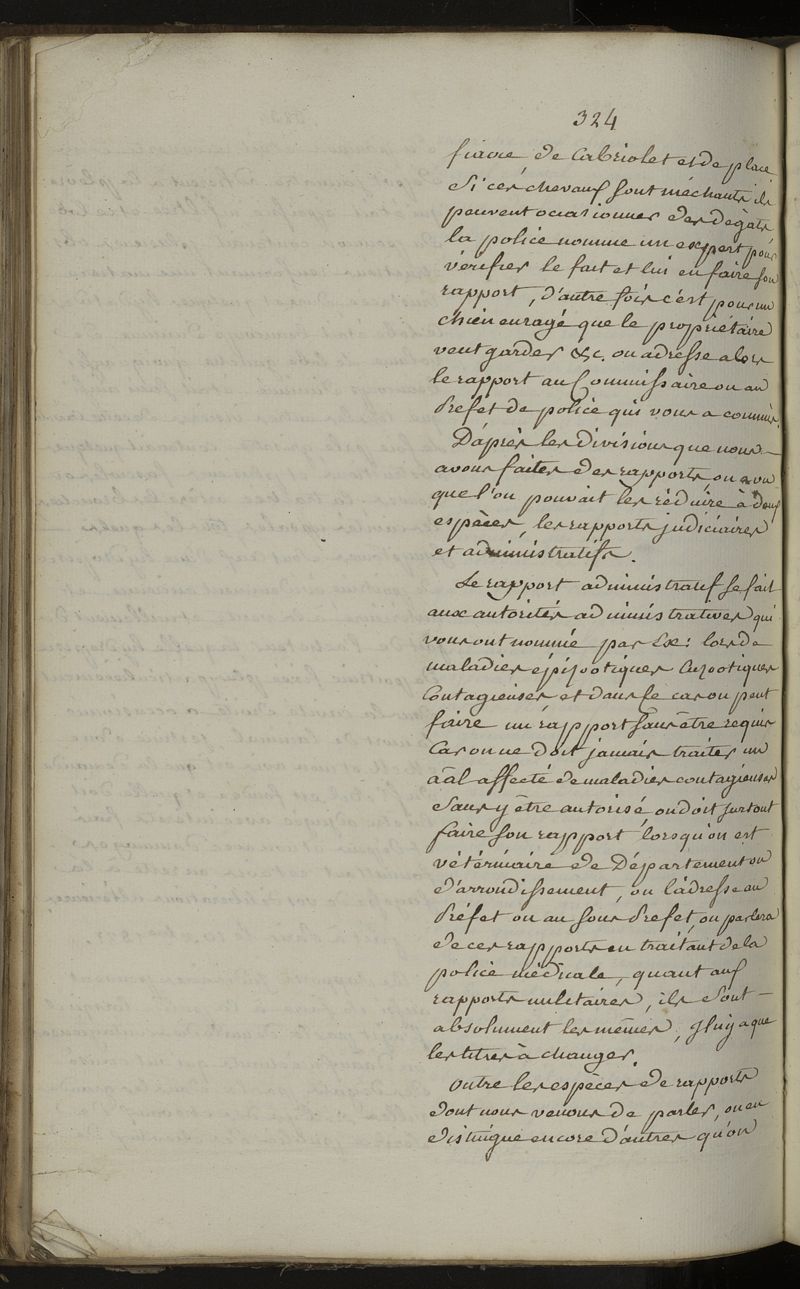 324
fiacre de Cabriolet et de place
Si ces chevaux sont méchants ils
peuvent occasionner des dégats
la police nomme un expert pour
vérifier le fait et lui en faire son
rapport, d'autre fois c'est pour un
chien enragé que le propriétaire
veut garder &c. on adresse alors
le rapport au Commissaire ou au
Préfet de police qui vous a commis.
D'après les divisions que nous
avons faites des rapports, on a vu
que l'on pouvait les réduire à deux
espèces, les rapports judiciaires
et administratifs.
Le rapport administratif se fait
aux autorités administratives qui
vous ont nommé par Ex: lors de
maladies épizootiques enzootiques
Contagieuses et dans ce cas on peut
faire un rapport sans être requis
Car on ne doit jamais traiter un
āāl affecté de maladies contagieuses
Sans y être autorisé, on doit surtout
faire son rapport lorsqu'on est
vétérinaire de Département ou
d'arrondissement, on l'adresse au
Préfet ou au Sous Prefet, on parlera
de ces rapports en traitant de la
police médicale, quant aux
rapports militaires, ils sont
absolument les mêmes, Il n'y a que
les titres à changer.
Outre les espèces de rapports
dont nous venons de parler, on en
distingue encore d'autres qu'on